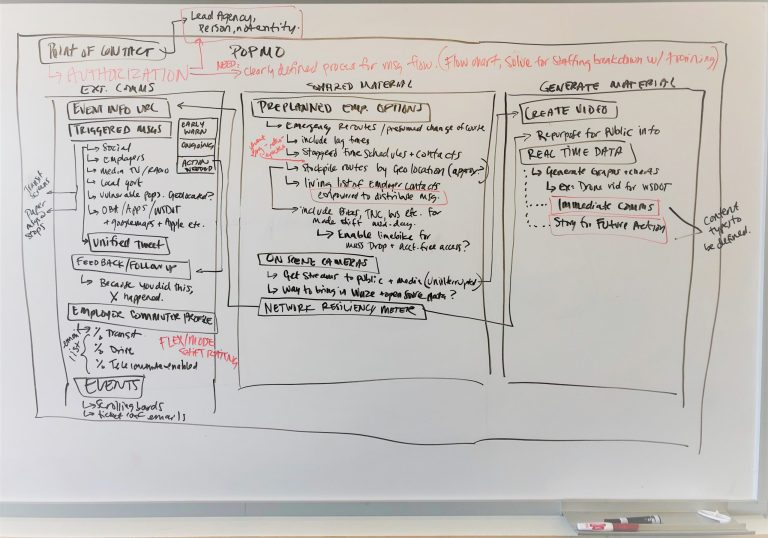 Lead Agency,
Person, not entity.
POINT OF CONTACT
POPMO
AUTHORIZATION
NEED:
clearly defined process for msg flow. (Flow chart, solve for staffing breakdown w/ training)
EXT. COMMS
EVENT INFO URL
TRIGGERED MSGS
EARLY WARN
ONGOING
ACTION NEEDED
Social
Employers
Media TV/RADIO
Local govt
vulnerable pops. Geolocated?
OBA/Apps/WSDOT
+ googlemaps + Apple etc.
Unified Tweet
FEEDBACK/FOLLOW UP
Because you did this,
X happened.
EMPLOYER COMMUTER PROFILE
% Transit
% Drive
% Telecommute enabled
list
FLEX/MODE
SHIFT RATING
EVENTS
Scrolling boards
ticket conf emails
Paper
@
stops
SHARED MATERIAL
PREPLANNED EMP. OPTIONS
Emergency Reroutes / presumed change of route
include lag times
Staggered time schedules + contacts
Stockpile routes by Geo location (approx?)
living list of employer contacts
empowered to distribute msg.
include Bikes, TNC, bus etc. for
mode shift mid-day.
Enable limebike for
mass Drop + acct.free access?
ON SCENE CAMERAS
Get Streams to public + media (uninterrupted)
Way to bring in Waze + open source data?
NETWORK RESILIENCY METER
GENERATE MATERIAL
CREATE VIDEO
Repurpose for Public info
REAL TIME DATA
Generate Graphs + charts
Ex: Drone vid for WSDOT
Immediate Comms
Story for Future Action
Content
types to
be defined.